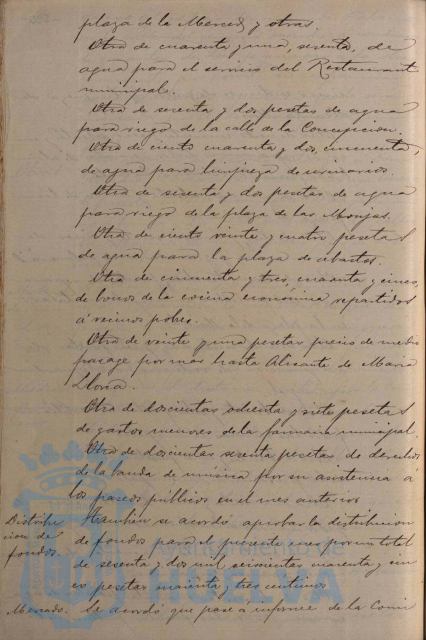 plaza de la Merced y otras.
Otra de cuarenta y una, sesenta, de
agua para el servicio del Restaurant
municipal.
Otra de sesenta y dos pesetas de agua
para riego de la calle de la Concepcion.
Otra de ciento cuarenta y dos, cincuenta,
de agua para limpieza de urinarios.
Otra de sesenta y dos pesetas de agua
para riego de la plaza de las Monjas.
Otra de ciento veinte y cuatro pesetas
de agua para la plaza de abastos.
Otra de cincuenta y tres, cuarenta y cinco,
de bonos de la cocina económica repartidos
á vecinos pobres.
Otra de veinte y una pesetas precio de medio
pasage por mar hasta Alicante de Maria
Lloria.
Otra de doscientas ochenta y siete pesetas
de gastos menores de la farmacia municipal.
Otra de doscientas sesenta pesetas de derechos
de la banda de música por su asistencia á
los paseos públicos en el mes anterior.
Distribu
cion de
fondos.
Tambien se acordó aprobar la distribucion
de fondos para el presente mes por un total
de sesenta y dos mil seiscientas cuarenta y cin
co pesetas cuarenta y tres centimos
Mercado.
Se acordó que pase á informe de la Comi
Ayuntamiento de
HUELVA